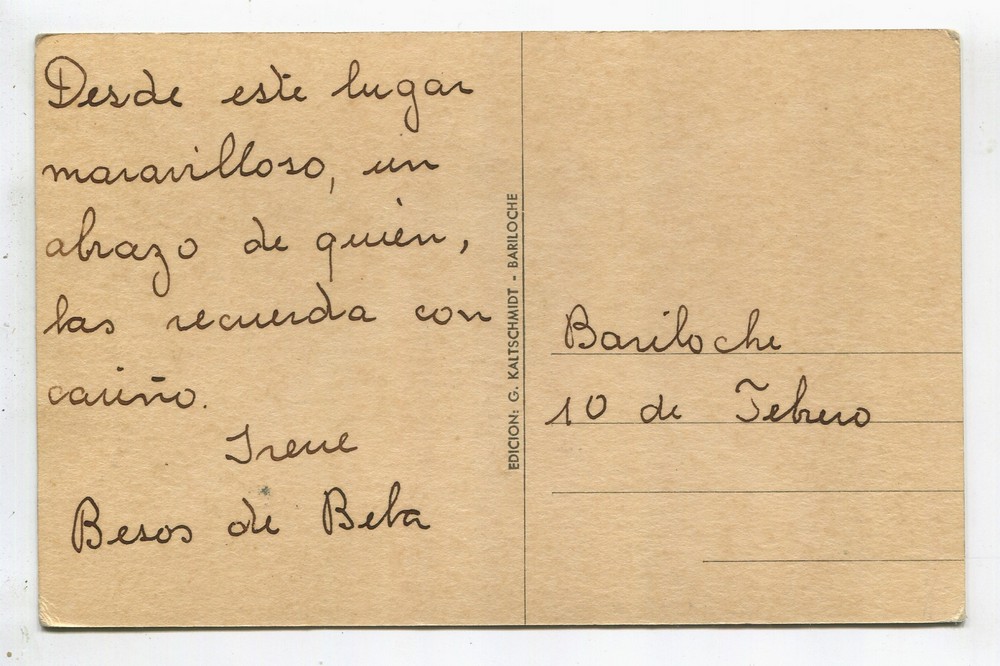 Desde este lugar
maravilloso, un
abrazo de quién,
las recuerda con
cariño.
Irene
Besos de Beba
EDICION: G. KALTSCHMIDT - BARILOCHE
Bariloche
10 de Febrero